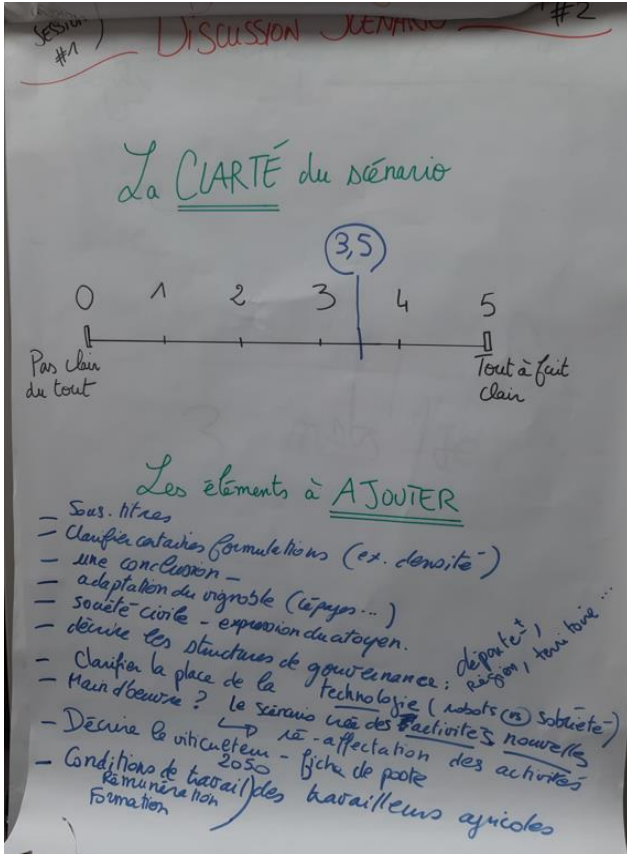 SESSION #1
DISCUSSION SCÉNARIO
#2
La CLARTÉ du scénario
3,5
0 1 2 3 4 5
Pas clair du tout
Tout à fait clair
Les éléments à AJOUTER
– Sous-titres
– Clarifier certaines formulations (ex. densité)
– une conclusion –
– adaptation du vignoble (cépages...)
– société civile – expression du citoyen.
– décrire les structures de gouvernance : départe^t, Région, territoire...
– Clarifier la place de la technologie (robots vs sobriété)
– Main d'œuvre ? Le scénario crée des activités nouvelles
↳ ré-affectation des activités
– Décrire le viticulteur 2050 – fiche de poste
– Conditions de travail
Rémunération
Formation
) des travailleurs agricoles